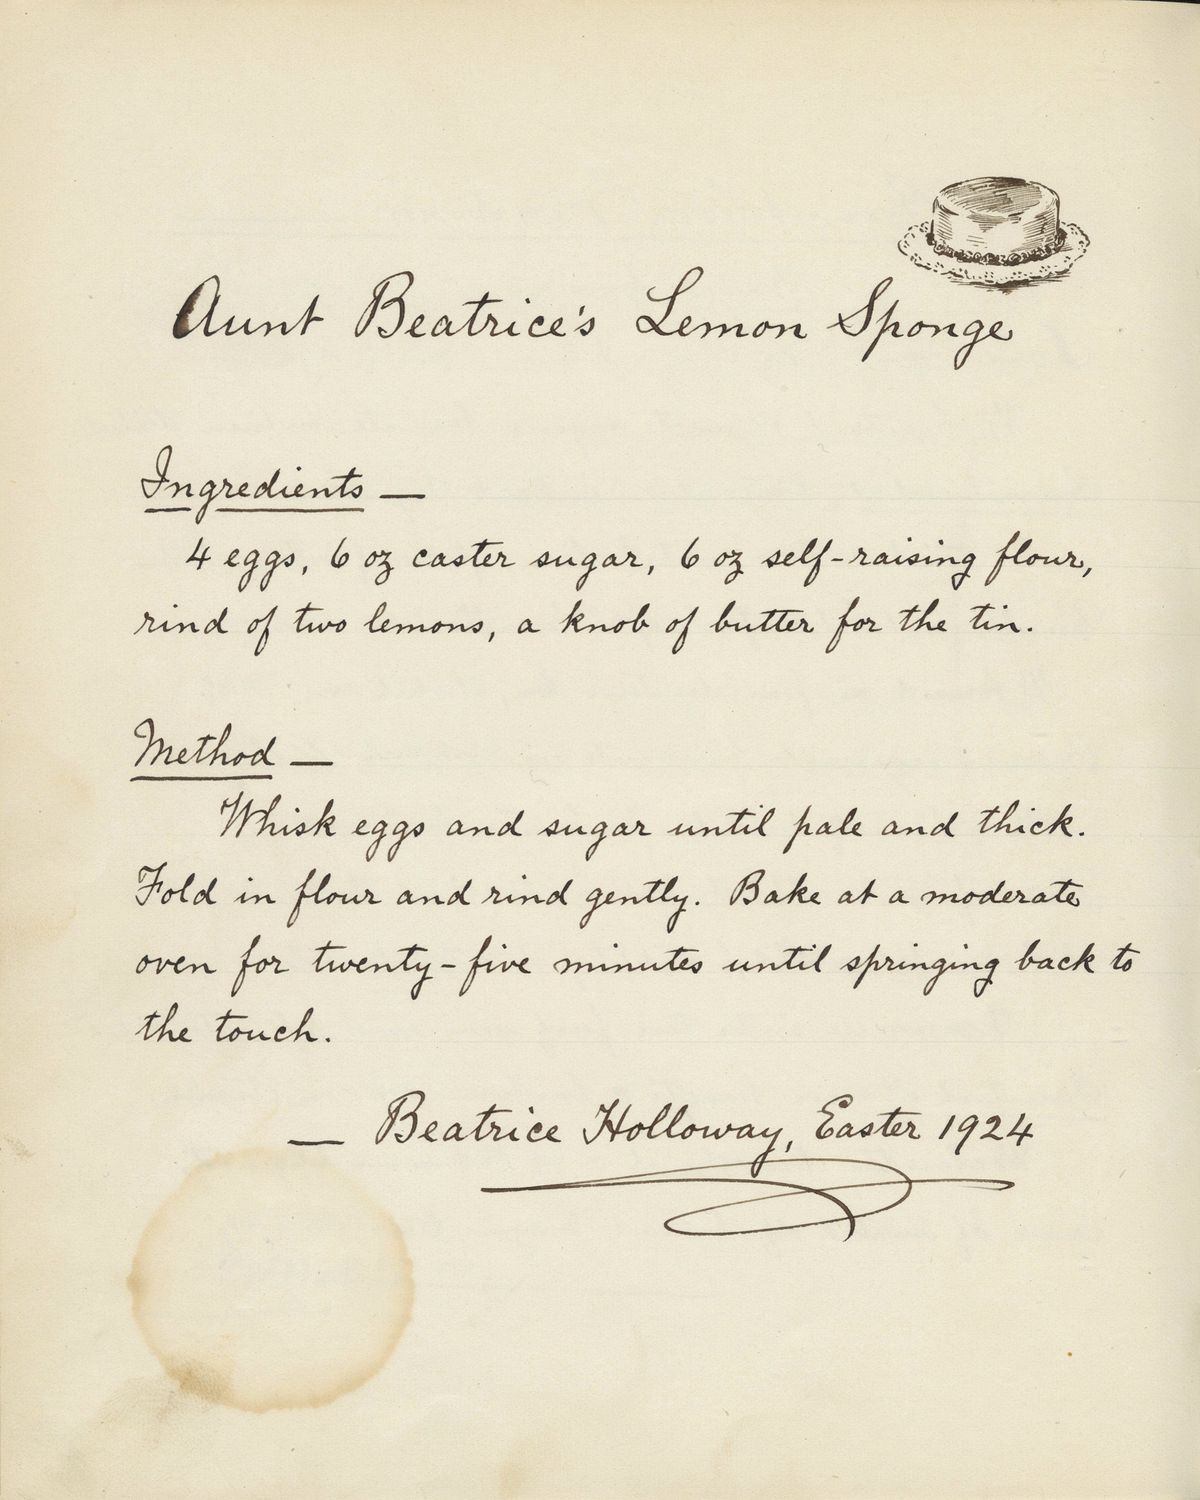 Aunt Beatrice's Lemon Sponge
Ingredients —
4 eggs, 6 oz caster sugar, 6 oz self-raising flour,
rind of two lemons, a knob of butter for the tin.
Method —
Whisk eggs and sugar until pale and thick.
Fold in flour and rind gently. Bake at a moderate
oven for twenty-five minutes until springing back to
the touch.
— Beatrice Holloway, Easter 1924